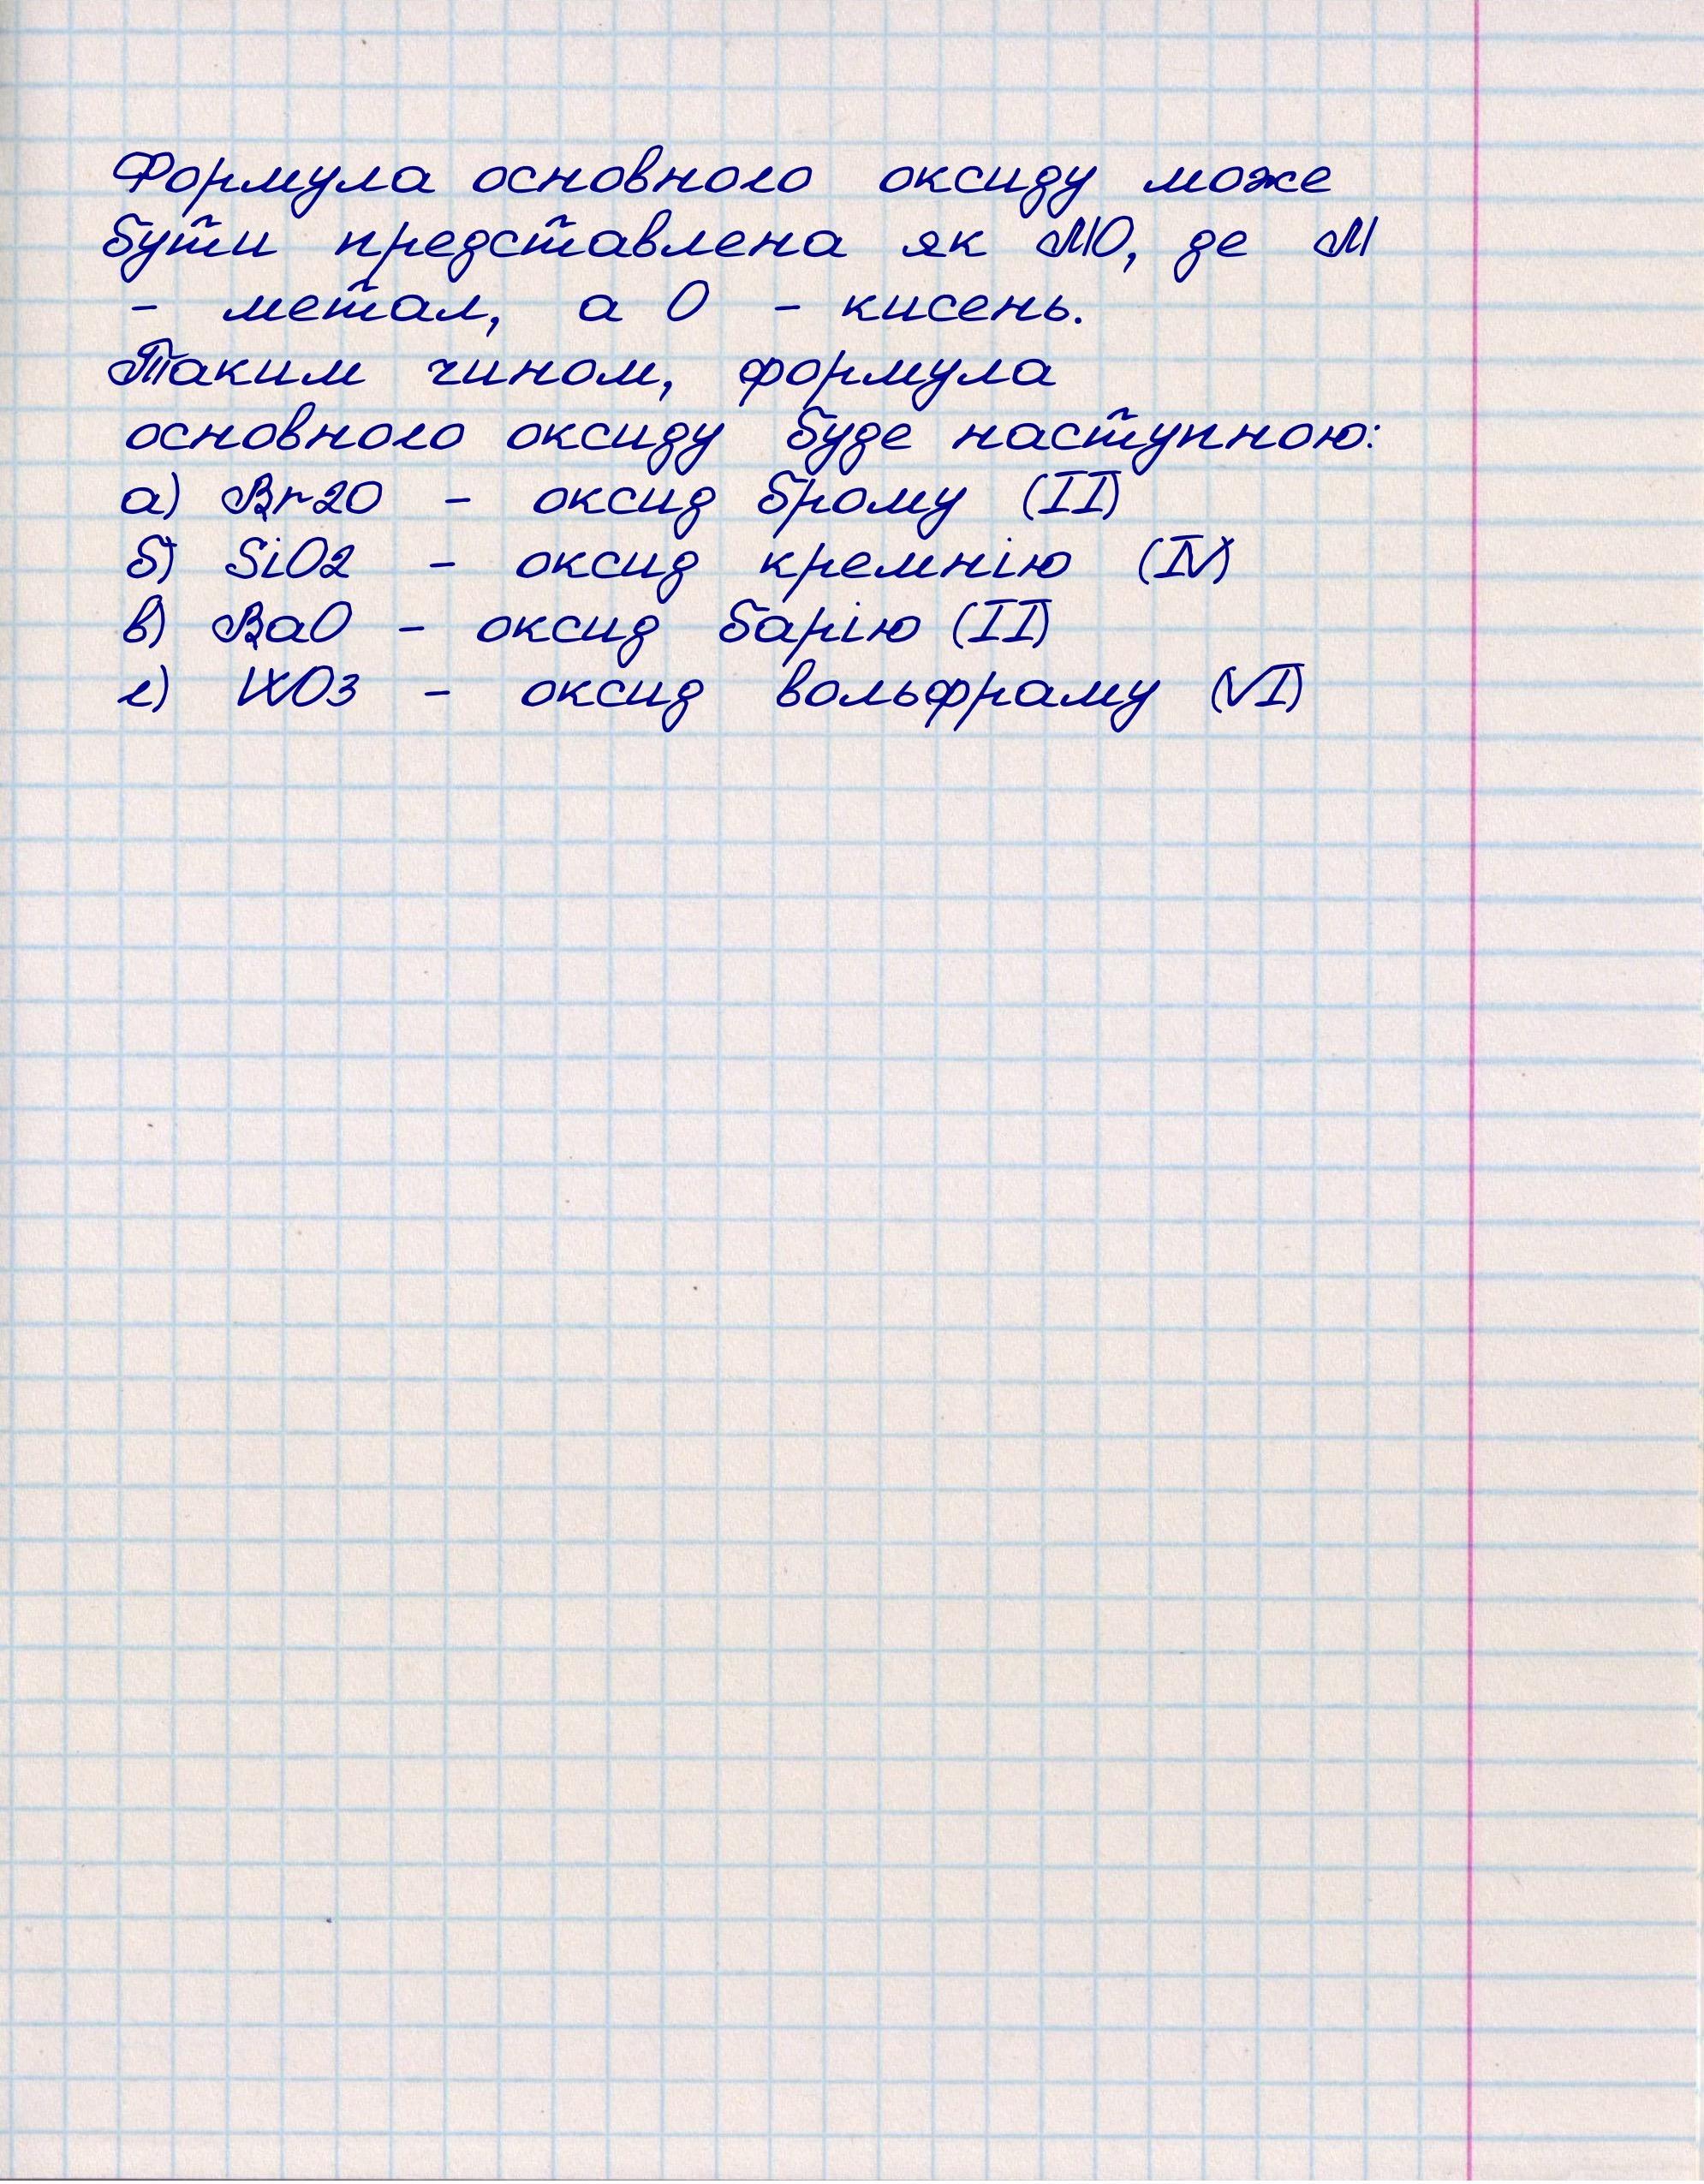 Формула основного оксиду може
бути представлена як MO, де M
- метал, а O - кисень.
Таким чином, формула
основного оксиду буде наступною:
а) Br2O - оксид брому (II)
б) SiO2 - оксид кремнію (IV)
в) BaO - оксид барію (II)
г) WO3 - оксид вольфраму (VI)